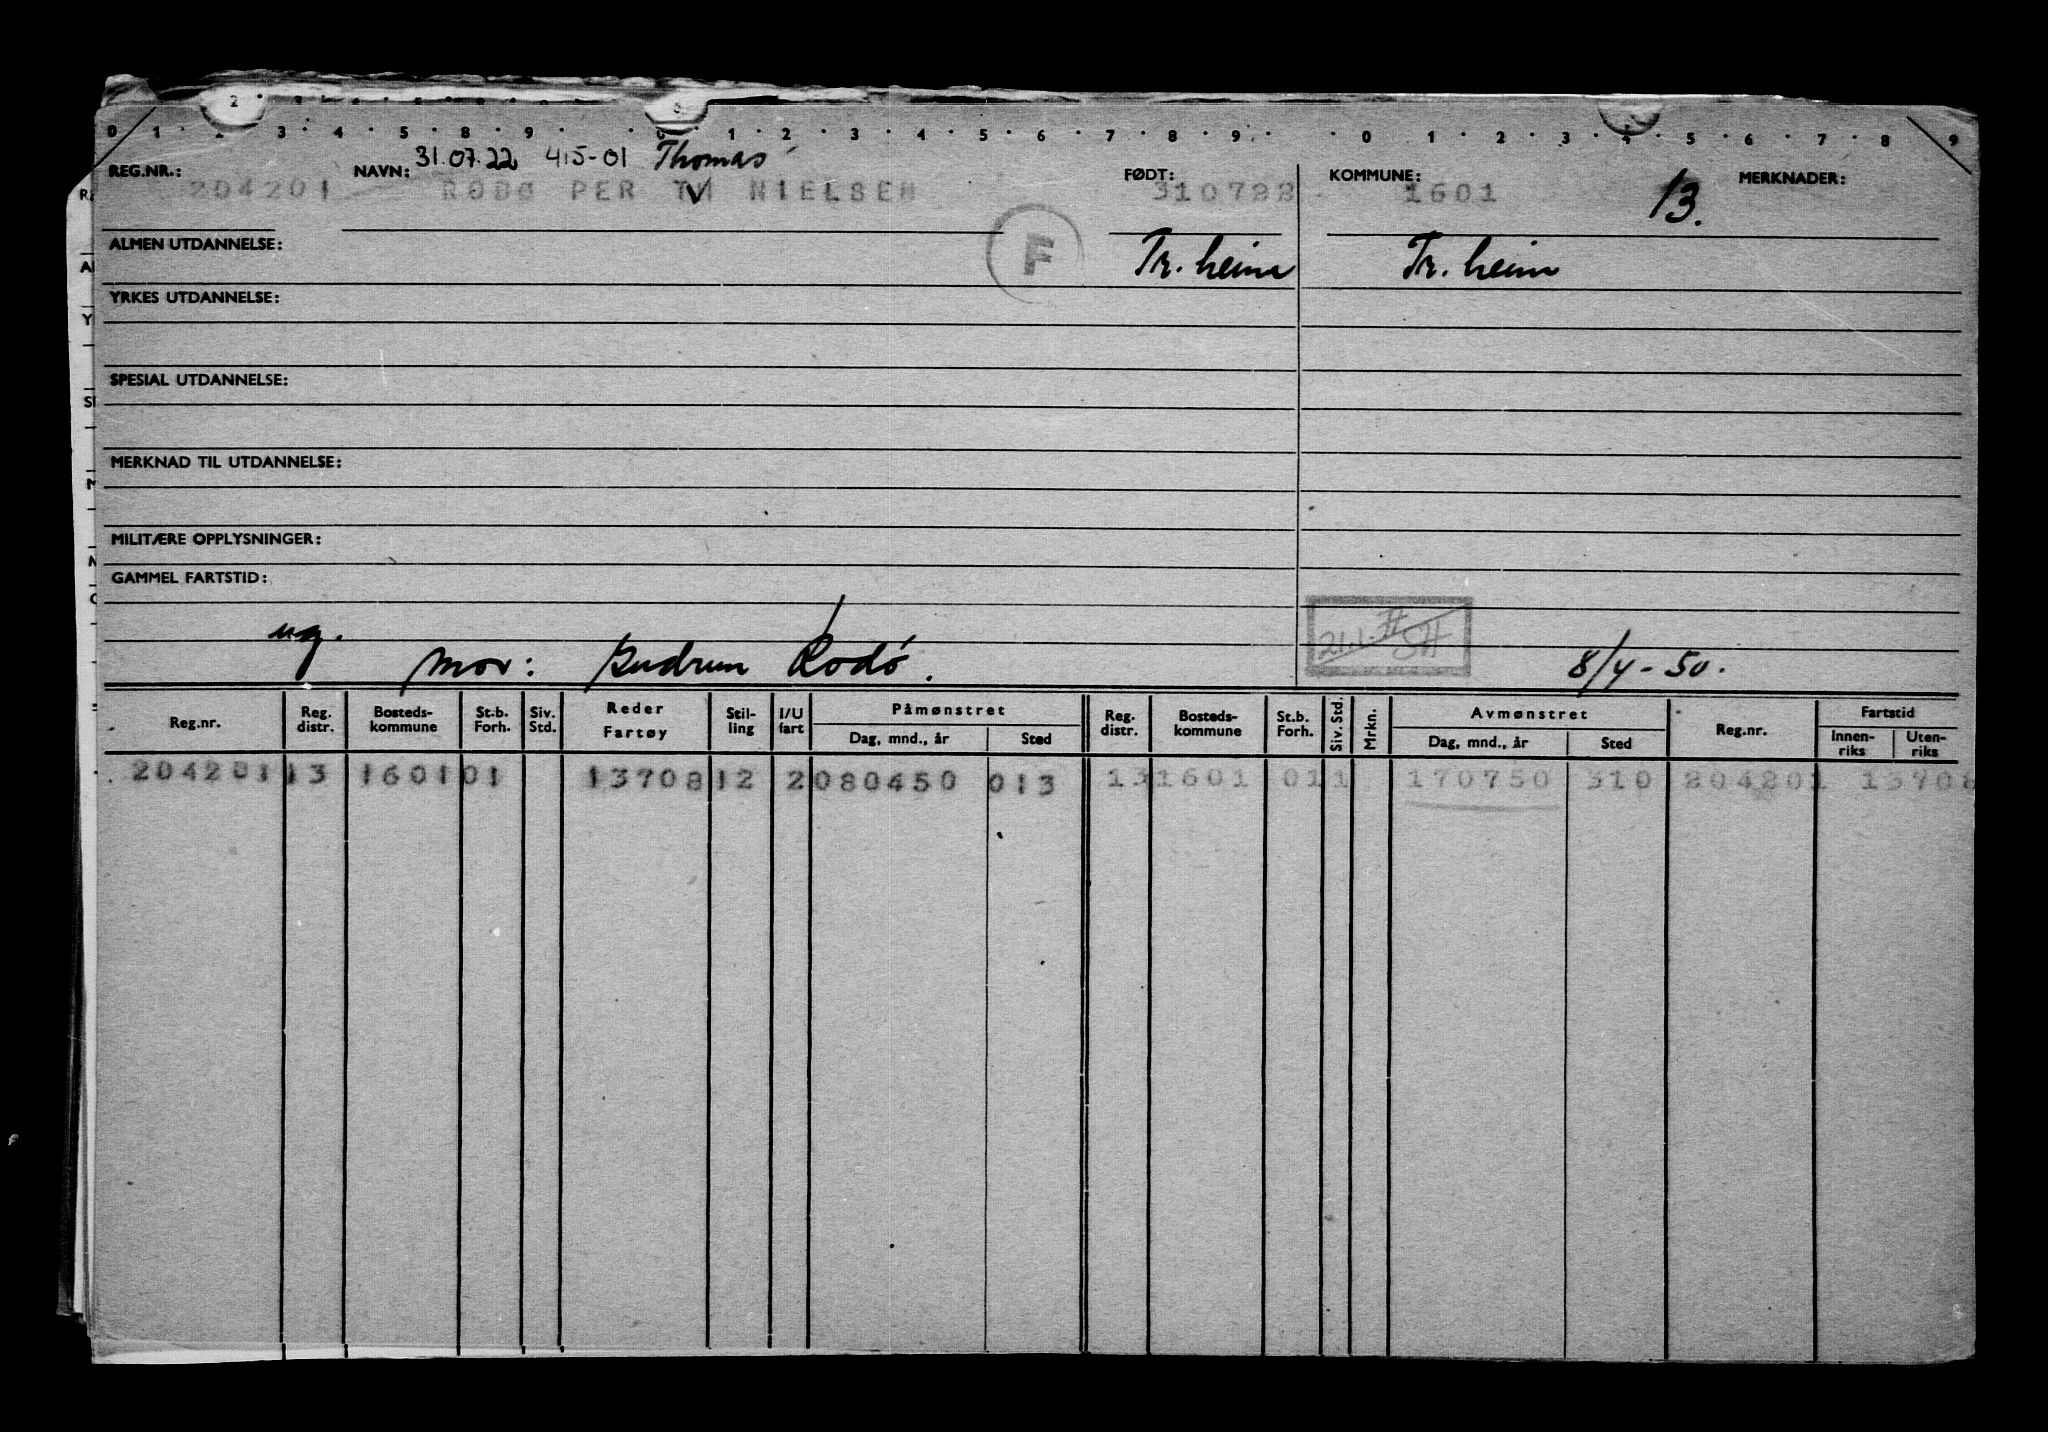 2 8
0 1 2 3 4 5 8 9 0 1 2 3 4 5 6 7 8 9 0 1 2 3 4 5 6 7 8 9
31.07.22 415-01 Thomas
REG.NR.: NAVN: FØDT: KOMMUNE: MERKNADER:
204201 RØDØ PER TH NIELSEN 310722 1601 13.
ALMEN UTDANNELSE: F Tr.heim Tr.heim
YRKES UTDANNELSE:
SPESIAL UTDANNELSE:
MERKNAD TIL UTDANNELSE:
MILITÆRE OPPLYSNINGER:
GAMMEL FARTSTID:
ug. mor: Gudrun Rodó. 8/4-50.
Reg.nr. Reg. distr. Bosteds-kommune St.b. Forh. Siv. Std. Reder Fartøy Stil-ling I/U fart Påmønstret Dag, mnd., år Sted Reg. distr. Bosteds-kommune St.b. Forh. Siv. Std. Mrkn. Avmønstret Dag, mnd., år Sted Reg.nr. Fartstid Innen-riks Uten-riks
204201 13 1601 01 13708 12 2 080450 013 13 1601 01 1 170750 310 204201 13708